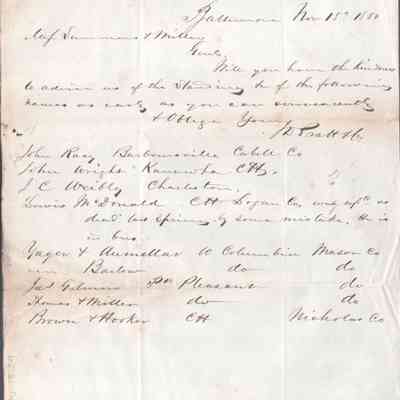 Baltimore Nov 15th 1850
Summers & Miller
Gents
Will you have the kindness
to advise us of the Standing &c of the following
names as early as you can conveniently
& Oblige Yours
Pratt &
John Ray Barboursville Cabell Co
John Wright Kanawha CH,
J C Weibly Charleston,
Lewis McDonald CH Logan Co, was
dead last Spring by some mistake. He is
in bus.
Yager & Aumillar W Columbia Mason Co
Barlow do do
Jas Gilmore Pt Pleasant do
Thomas & Miller do do
Brown & Hooker CH Nicholas Co